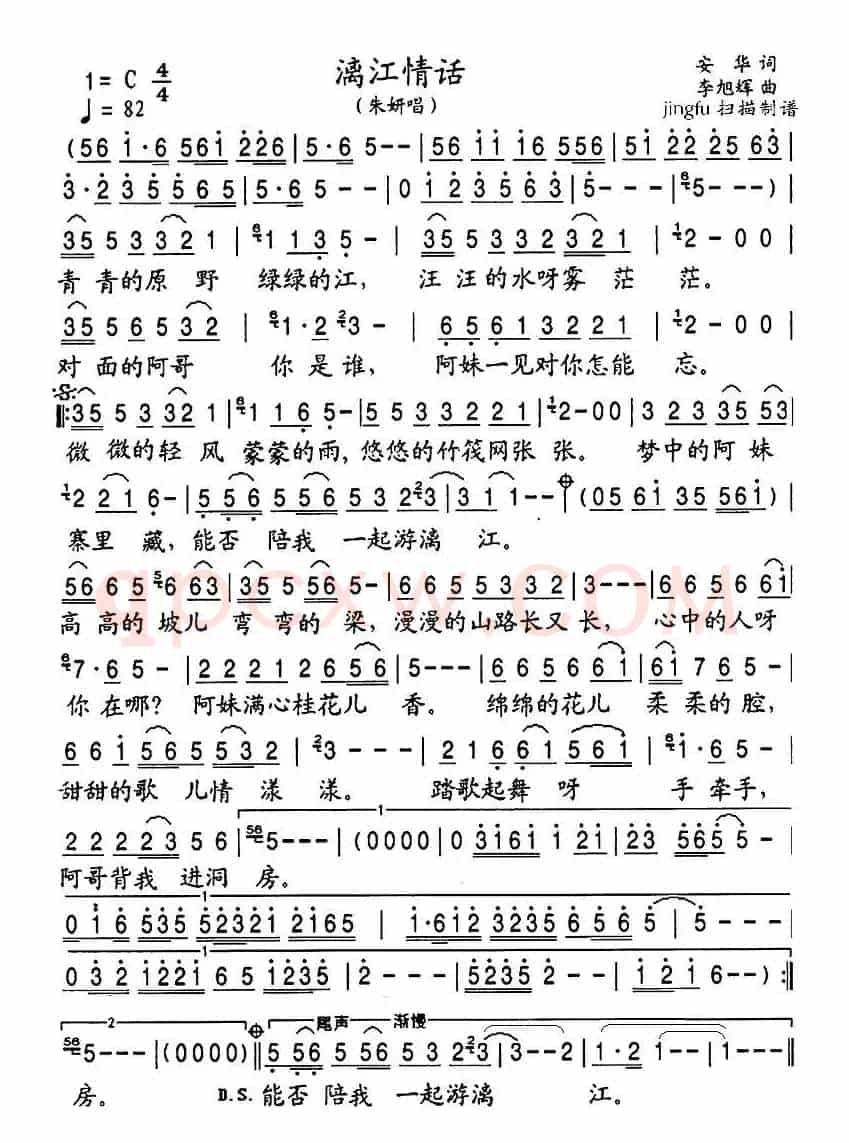 漓江情话
1= C 4/4
♩= 82
(朱妍唱)
安 华 词
李旭辉 曲
jingfu 扫描制谱
(56 1·6 561 226 | 5·6 5-- | 56 11 16 556 | 51 22 25 63 |
3·2 35 5 65 | 5·6 5 - - | 0 1 23 5 63 | 5 - - - | 5-- - ) |
35 5 3 32 1 | 1 1 3 5- | 35 5 3 3 2 32 1 | 2 - 0 0 |
青 青的原 野 绿绿的江, 汪 汪的水呀雾 茫 茫。
35 5 6 5 3 2 | 1·2 3 - | 6 5 6 1 3 2 2 1 | 2 - 0 0 |
对 面的阿哥 你是谁, 阿妹一见对你怎能 忘。
35 5 3 32 1 | 1 1 6 5- | 5 5 5 3 3 2 2 1 | 2-00 | 3 2 3 35 53 |
微 微的轻 风 蒙蒙的雨, 悠悠的竹筏网张 张。 梦中的阿 妹
2 2 1 6- | 5 56 5 56 5 3 23 | 3 1 1-- | (05 61 35 561) |
寨里 藏, 能否 陪我 一起游漓 江。
56 6 5 6 63 | 3 5 56 5- | 6 6 5 5 3 3 2 | 3--- | 6 6 5 6 61 |
高 高的 坡儿 弯 弯的 梁, 漫漫的山路长又 长, 心中的人呀
7·6 5- | 2 2 2 1 2 6 56 | 5--- | 6 6 5 6 61 | 61 7 6 5- |
你 在哪? 阿妹满心桂花儿 香。 绵绵的花儿 柔 柔的 腔,
6 6 1 56 5 53 2 | 3 - - - | 2 1 6 61 561 | 1·6 5- |
甜甜的歌 儿情 漾 漾。 踏歌起舞 呀 手 牵手,
1
2 2 2 23 5 6 | 5--- | (0000) | 0 3161 1 21 | 23 565 5 - |
阿哥背我 进洞 房。
1
0 1 6 535 52321 2165 | 1·612 3235 6 56 5 | 5 - - - |
0 32 1221 6 5 1235 | 2 - - - | 5235 2 - | 1 21 6--) :||
2
尾声 渐慢
5--- | (0000) || 5 56 5 56 5 3 23 | 3--2 | 1·2 1-- | 1--- ||
房。 D.S. 能否 陪我 一起游漓 江。
qpcxw.COM